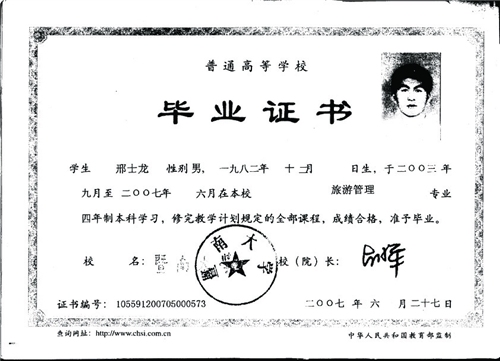 普通高等学校
毕业证书
学生 邢士龙 性别 男，一九八二年 十二月 日生，于二〇〇三年
九月至二〇〇七年 六月在本校 旅游管理 专业
四年制本科学习，修完教学计划规定的全部课程，成绩合格，准予毕业。
校 名：暨南 校（院）长：
暨南大学
证书编号：105591200705000573 二〇〇七年 六月二十七日
查询网址：http://www.chsi.com.cn 中华人民共和国教育部监制